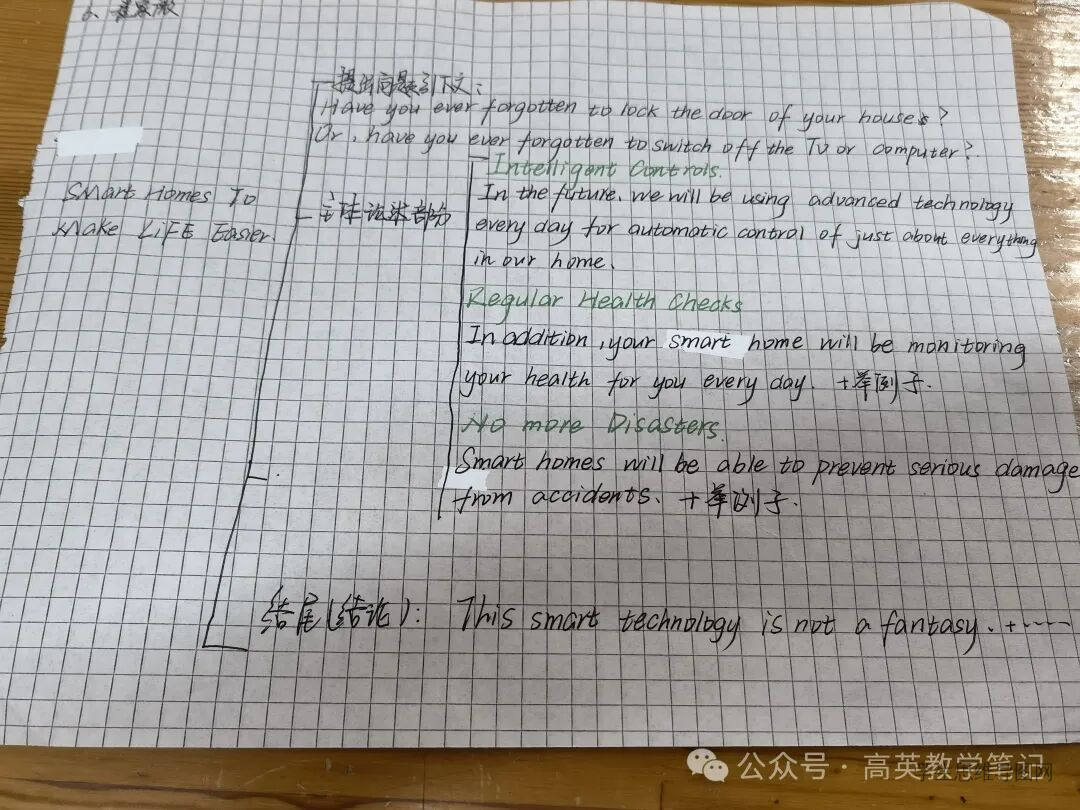 提出问题引下文:
Have you ever forgotten to lock the door of your house?
Or, have you ever forgotten to switch off the TV or computer?
Smart Homes To
Make LiFE Easier.
主体论策部分
Intelligent Controls.
In the future, we will be using advanced technology
every day for automatic control of just about everything
in our home.
Regular Health Checks
In addition, your smart home will be monitoring
your health for you every day. +举例子.
No more Disasters.
Smart homes will be able to prevent serious damage
from accidents. +举例子.
结尾(结论): This smart technology is not a fantasy. +……
公众号·高英教学笔记